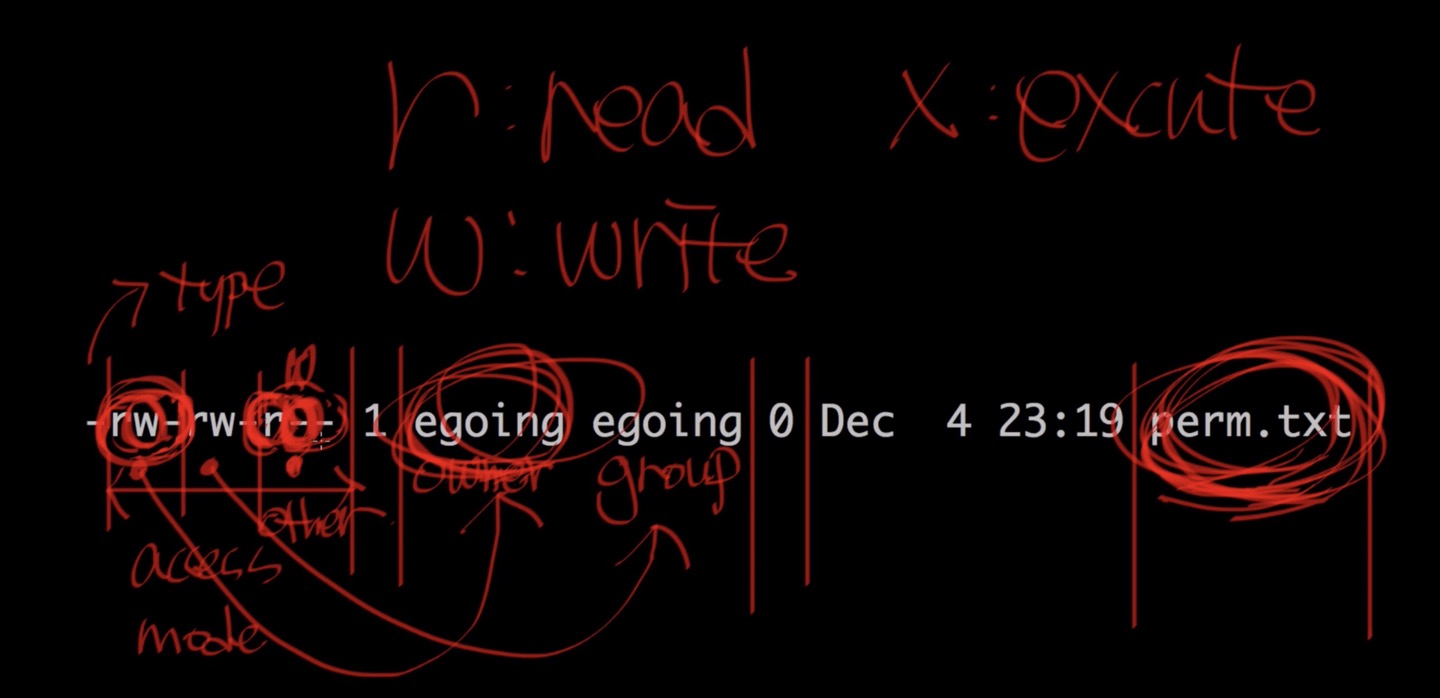 r:read x:excute
w:write
type
-rw-rw-r-- 1 egoing egoing 0 Dec  4 23:19 perm.txt
owner group
other
access
mode